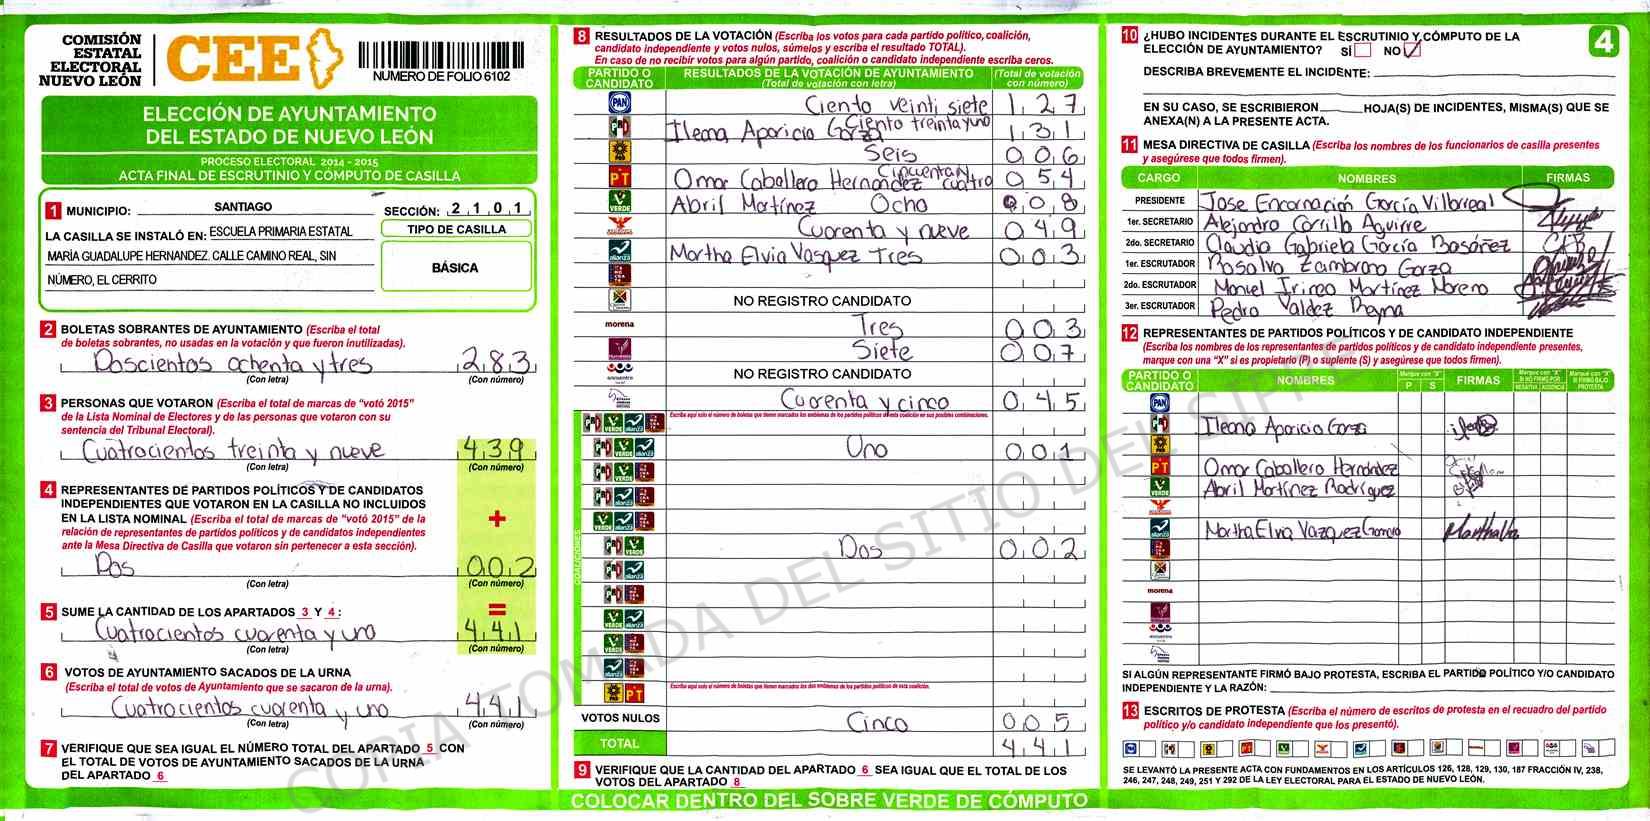 COMISIÓN
ESTATAL
ELECTORAL
NUEVO LEÓN
CEE
NUMERO DE FOLIO 6102
ELECCIÓN DE AYUNTAMIENTO
DEL ESTADO DE NUEVO LEÓN
PROCESO ELECTORAL 2014 - 2015
ACTA FINAL DE ESCRUTINIO Y CÓMPUTO DE CASILLA
1 MUNICIPIO: SANTIAGO SECCIÓN: 2 1 0 1
LA CASILLA SE INSTALÓ EN: ESCUELA PRIMARIA ESTATAL
MARÍA GUADALUPE HERNANDEZ. CALLE CAMINO REAL, SIN
NÚMERO, EL CERRITO
TIPO DE CASILLA
BÁSICA
2 BOLETAS SOBRANTES DE AYUNTAMIENTO (Escriba el total
de boletas sobrantes, no usadas en la votación y que fueron inutilizadas).
Doscientos ochenta y tres 2 8 3
(Con letra) (Con número)
3 PERSONAS QUE VOTARON (Escriba el total de marcas de "votó 2015"
de la Lista Nominal de Electores y de las personas que votaron con su
sentencia del Tribunal Electoral).
Cuatrocientos treinta y nueve 4 3 9
(Con letra) (Con número)
4 REPRESENTANTES DE PARTIDOS POLÍTICOS Y DE CANDIDATOS
INDEPENDIENTES QUE VOTARON EN LA CASILLA NO INCLUIDOS
EN LA LISTA NOMINAL (Escriba el total de marcas de "votó 2015" de la
relación de representantes de partidos políticos y de candidatos independientes
ante la Mesa Directiva de Casilla que votaron sin pertenecer a esta sección).
+
Dos 0 0 2
(Con letra) (Con número)
5 SUME LA CANTIDAD DE LOS APARTADOS 3 Y 4: =
Cuatrocientos cuarenta y uno 4 4 1
(Con letra) (Con número)
6 VOTOS DE AYUNTAMIENTO SACADOS DE LA URNA
(Escriba el total de votos de Ayuntamiento que se sacaron de la urna).
Cuatrocientos cuarenta y uno 4 4 1
(Con letra) (Con número)
7 VERIFIQUE QUE SEA IGUAL EL NÚMERO TOTAL DEL APARTADO 5 CON
EL TOTAL DE VOTOS DE AYUNTAMIENTO SACADOS DE LA URNA
DEL APARTADO 6
8 RESULTADOS DE LA VOTACIÓN (Escriba los votos para cada partido político, coalición,
candidato independiente y votos nulos, súmelos y escriba el resultado TOTAL).
En caso de no recibir votos para algún partido, coalición o candidato independiente escriba ceros.
PARTIDO O CANDIDATO RESULTADOS DE LA VOTACIÓN DE AYUNTAMIENTO (Total de votación con letra) (Total de votación con número)
PAN Ciento veinti siete 1 2 7
PRD Ileana Aparicio Garza Ciento treinta y uno 1 3 1
Seis 0 0 6
PT Omar Caballero Hernandez Cincuenta y cuatro 0 5 4
VERDE Abril Martínez Ocho 0 0 8
Cuarenta y nueve 0 4 9
alianza Martha Elvia Vasquez Tres 0 0 3
NO REGISTRO CANDIDATO
morena Tres 0 0 3
Siete 0 0 7
encuentro NO REGISTRO CANDIDATO
Cuarenta y cinco 0 4 5
Escriba aquí solo el número de boletas que tienen marcados los emblemas de los partidos políticos de esta coalición en sus posibles combinaciones.
COALICIONES
Uno 0 0 1
Dos 0 0 2
Escriba aquí solo el número de boletas que tienen marcados los dos emblemas de los partidos políticos de esta coalición.
VOTOS NULOS Cinco 0 0 5
TOTAL 4 4 1
9 VERIFIQUE QUE LA CANTIDAD DEL APARTADO 6 SEA IGUAL QUE EL TOTAL DE LOS
VOTOS DEL APARTADO 8
COLOCAR DENTRO DEL SOBRE VERDE DE CÓMPUTO
10 ¿HUBO INCIDENTES DURANTE EL ESCRUTINIO Y CÓMPUTO DE LA
ELECCIÓN DE AYUNTAMIENTO? SÍ NO
4
DESCRIBA BREVEMENTE EL INCIDENTE:
EN SU CASO, SE ESCRIBIERON HOJA(S) DE INCIDENTES, MISMA(S) QUE SE
ANEXA(N) A LA PRESENTE ACTA.
11 MESA DIRECTIVA DE CASILLA (Escriba los nombres de los funcionarios de casilla presentes
y asegúrese que todos firmen).
CARGO NOMBRES FIRMAS
PRESIDENTE Jose Encarnación García Villarreal
1er. SECRETARIO Alejandro Carrillo Aguirre
2do. SECRETARIO Claudia Gabriela García Basáñez
1er. ESCRUTADOR Rosalva Zambrano Garza
2do. ESCRUTADOR Manuel Irineo Martínez Moreno
3er. ESCRUTADOR Pedro Valdez Reyna
12 REPRESENTANTES DE PARTIDOS POLÍTICOS Y DE CANDIDATO INDEPENDIENTE
(Escriba los nombres de los representantes de partidos políticos y de candidato independiente presentes,
marque con una "X" si es propietario (P) o suplente (S) y asegúrese que todos firmen).
PARTIDO O CANDIDATO NOMBRES Marque con "X" P S FIRMAS Marque con "X" SI NO FIRMÓ POR NEGATIVA AUSENCIA Marque con "X" SI FIRMÓ BAJO PROTESTA
PAN
Ileana Aparicio Garza
PT Omar Caballero Hernández
VERDE Abril Martínez Rodríguez
Martha Elvia Vazquez
morena
encuentro
SI ALGÚN REPRESENTANTE FIRMÓ BAJO PROTESTA, ESCRIBA EL PARTIDO POLÍTICO Y/O CANDIDATO
INDEPENDIENTE Y LA RAZÓN:
13 ESCRITOS DE PROTESTA (Escriba el número de escritos de protesta en el recuadro del partido
político y/o candidato independiente que los presentó).
SE LEVANTÓ LA PRESENTE ACTA CON FUNDAMENTOS EN LOS ARTÍCULOS 126, 128, 129, 130, 187 FRACCIÓN IV, 238,
246, 247, 248, 249, 251 Y 292 DE LA LEY ELECTORAL PARA EL ESTADO DE NUEVO LEÓN.
COPIA TOMADA DEL SITIO DEL SIPRE